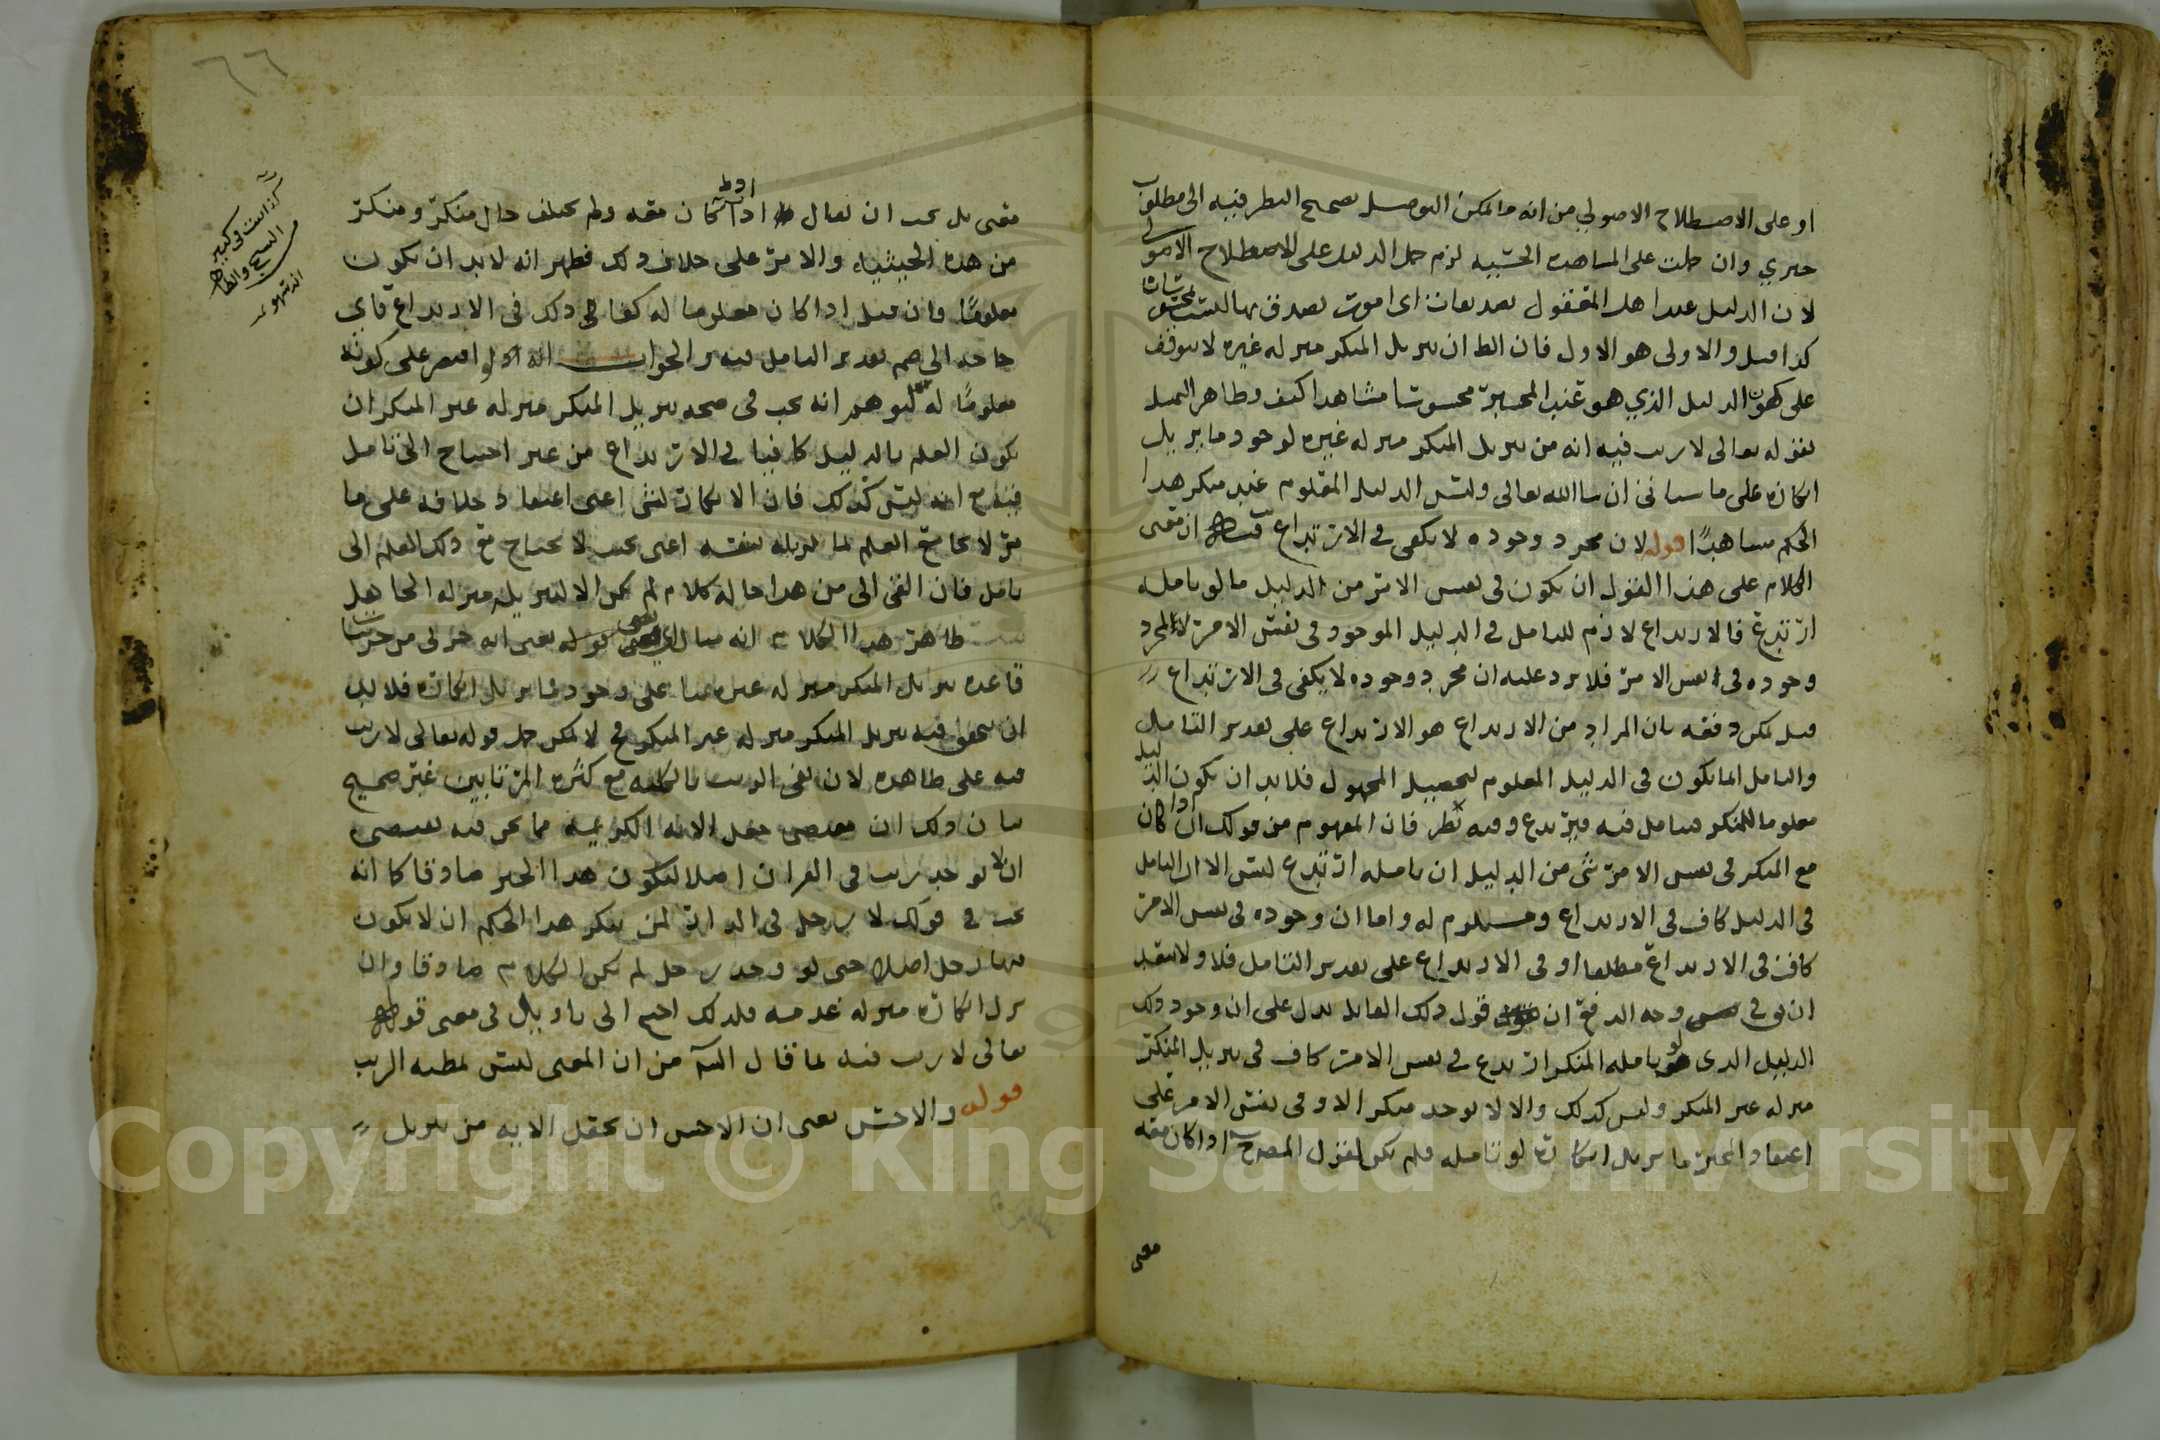 او على الاصطلاح الاصولي من انه ما يمكن التوصل بصحيح النظر فيه الى مطلوب
خبري وان حملت على المشاهدة الحسية لزم حمل الدليل على الاصطلاح الاصولي
لان الدليل عند اهل المعقول تصديقات اى اموت تصدق بها ليست محسوسات
كذا قيل والاولى هو الاول فان الظ ان تنزيل المنكر منزلة غيره لا يتوقف
على كون الدليل الذي هو عند المخبر محسوسا مشاهدا كيف وظاهر التمثيل
بقوله تعالى لا ريب فيه انه من تنزيل المنكر منزلة غيره لوجود ما يزيل
انكاره على ما سيأتى ان شا الله تعالى وليس الدليل المعلوم عند منكر هذا
الحكم مشاهدًا قوله لان مجرد وجوده لا يكفى في الارتداع قيل ان معنى
الكلام على هذا القول ان يكون فى نفس الامر من الدليل ما لو تامله
ارتدع فالارتداع لازم للتامل في الدليل الموجود في نفس الامر لا لمجرد
وجوده فى نفس الامر فلا يرد عليه ان مجرد وجوده لا يكفى في الارتداع
قيل يمكن دفعه بان المراد من الارتداع هو الارتداع على تقدير التامل
والتامل انما يكون فى الدليل المعلوم لتحصيل المجهول فلا بد ان يكون الدليل
معلوما للمنكر فيتامل فيه فيرتدع وفيه نظر فان المفهوم من قولك اذا كان
مع المنكر فى نفس الامر شى من الدليل ان تامله ارتدع ليس الا ان التامل
في الدليل كاف في الارتداع ومستلزم له واما ان وجوده فى نفس الامر
كاف في الارتداع مطلقا او في الارتداع على تقدير التامل فلا ولا يبعد
ان وجه الدفع ان قول ذلك القايل يدل على ان وجود ذلك
الدليل الذى لو تامله المنكر ارتدع في نفس الامر كاف في تنزيل المنكر
منزلة غير المنكر وليس كذلك والا لا يوجد منكر الا وفى نفس الامر على
اعتقاد المخبر ما يزيل انكاره لو تامله فلم يكن لقول المصرح اذا كان معه
معنى
٦٦
معنى بل يجب ان يقال اذا كان معه ولم يختلف حال منكر ومنكر
من هذه الحيثية والامر على خلاف ذلك فظهر انه لا بد ان يكون
معلومًا وان قيل اذا كان معلوما له كفا في ذلك في الارتداع فاى
حاجة الى ضم تقدير التامل الجواب انه لو اقتصر على كونه
معلومًا له لتوهم انه يجب فى صحة تنزيل المنكر منزلة غير المنكر ان
يكون العلم بالدليل كافيا في الارتداع من غير احتياج الى تامل
انه ليس كذلك فان الانكار لشى اعنى اعتقاد خلافه على ما
مر لا يجامع العلم لما يزيله بنفسه اعنى بحيث لا يحتاج مع ذلك العلم الى
تامل فان القى الى من هذا حاله كلام لم يكن الا لتنزيله منزلة الجاهل
ظاهر هذا الكلام انه مثال قوله يعنى انه جزئى من جزئيات
قاعدة تنزيل المنكر منزلة غيره بنا على وجود ما يزيل انكاره فلا بد
ان يتحقق فيه تنزيل المنكر منزلة غير المنكر فح لا يمكن حمل قوله تعالى لا ريب
فيه على ظاهره لان نفى الريب بالكلية مع كثرة المرتابين غير صحيح
بيان ذلك ان مقتضى جعل الاية الكريمة مما نحن فيه يقتضى
ان لا يوجد ريب في القران اصلا ليكون هذا الخبر صادقا كما انه
يجب في قولك لا رجل في الدار لمن ينكر هذا الحكم ان لا يكون
فيها رجل اصلا حتى لو وجد رجل لم يكن الكلام صادقا وان
نزل انكاره منزلة عدمه فلذلك احتيج الى تاويل فى معنى قوله
تعالى لا ريب فيه لما قال من ان المعنى ليس بمظنة الريب
قوله والاحسن يعنى ان الاحسن ان يجعل الاية من تنزيل
كذا
السبع والظاهر